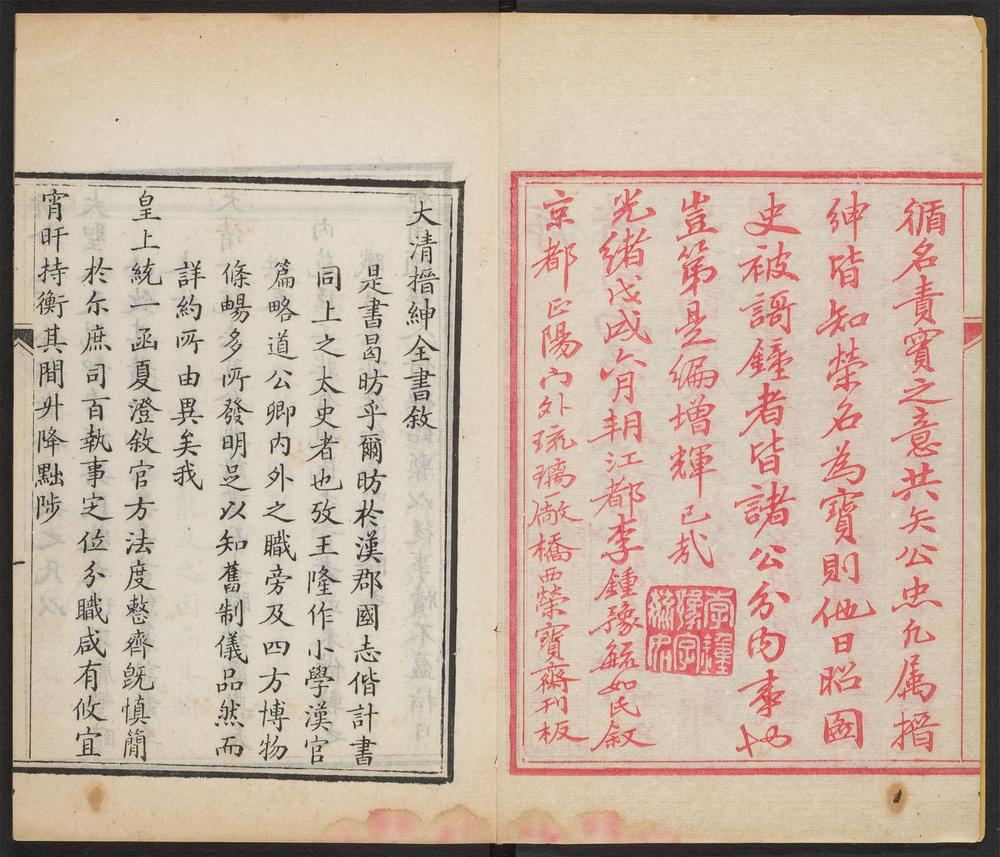 循名責實之意共矢公忠允属搢
紳皆知榮名為寶則他日昭國
史被謌鐘者皆諸公分内事也
豈第是編增輝已哉
光緒戊戌六月朔江都李鍾豫毓如氏叙
京都正陽門外琉璃廠橋西榮寶齋刊板
李鍾豫字
大清搢紳全書敘
是書曷昉乎爾昉於漢郡國志偕計書
同上之太史者也攷王隆作小學漢官
篇略道公卿内外之職旁及四方博物
條暢多所發明足以知舊制儀品然而
詳約所由異矣我
皇上統一函夏澄敘官方法度整齊既慎簡
於尓庶司百執事定位分職咸有攸宜
宵旰持衡其間升降黜陟